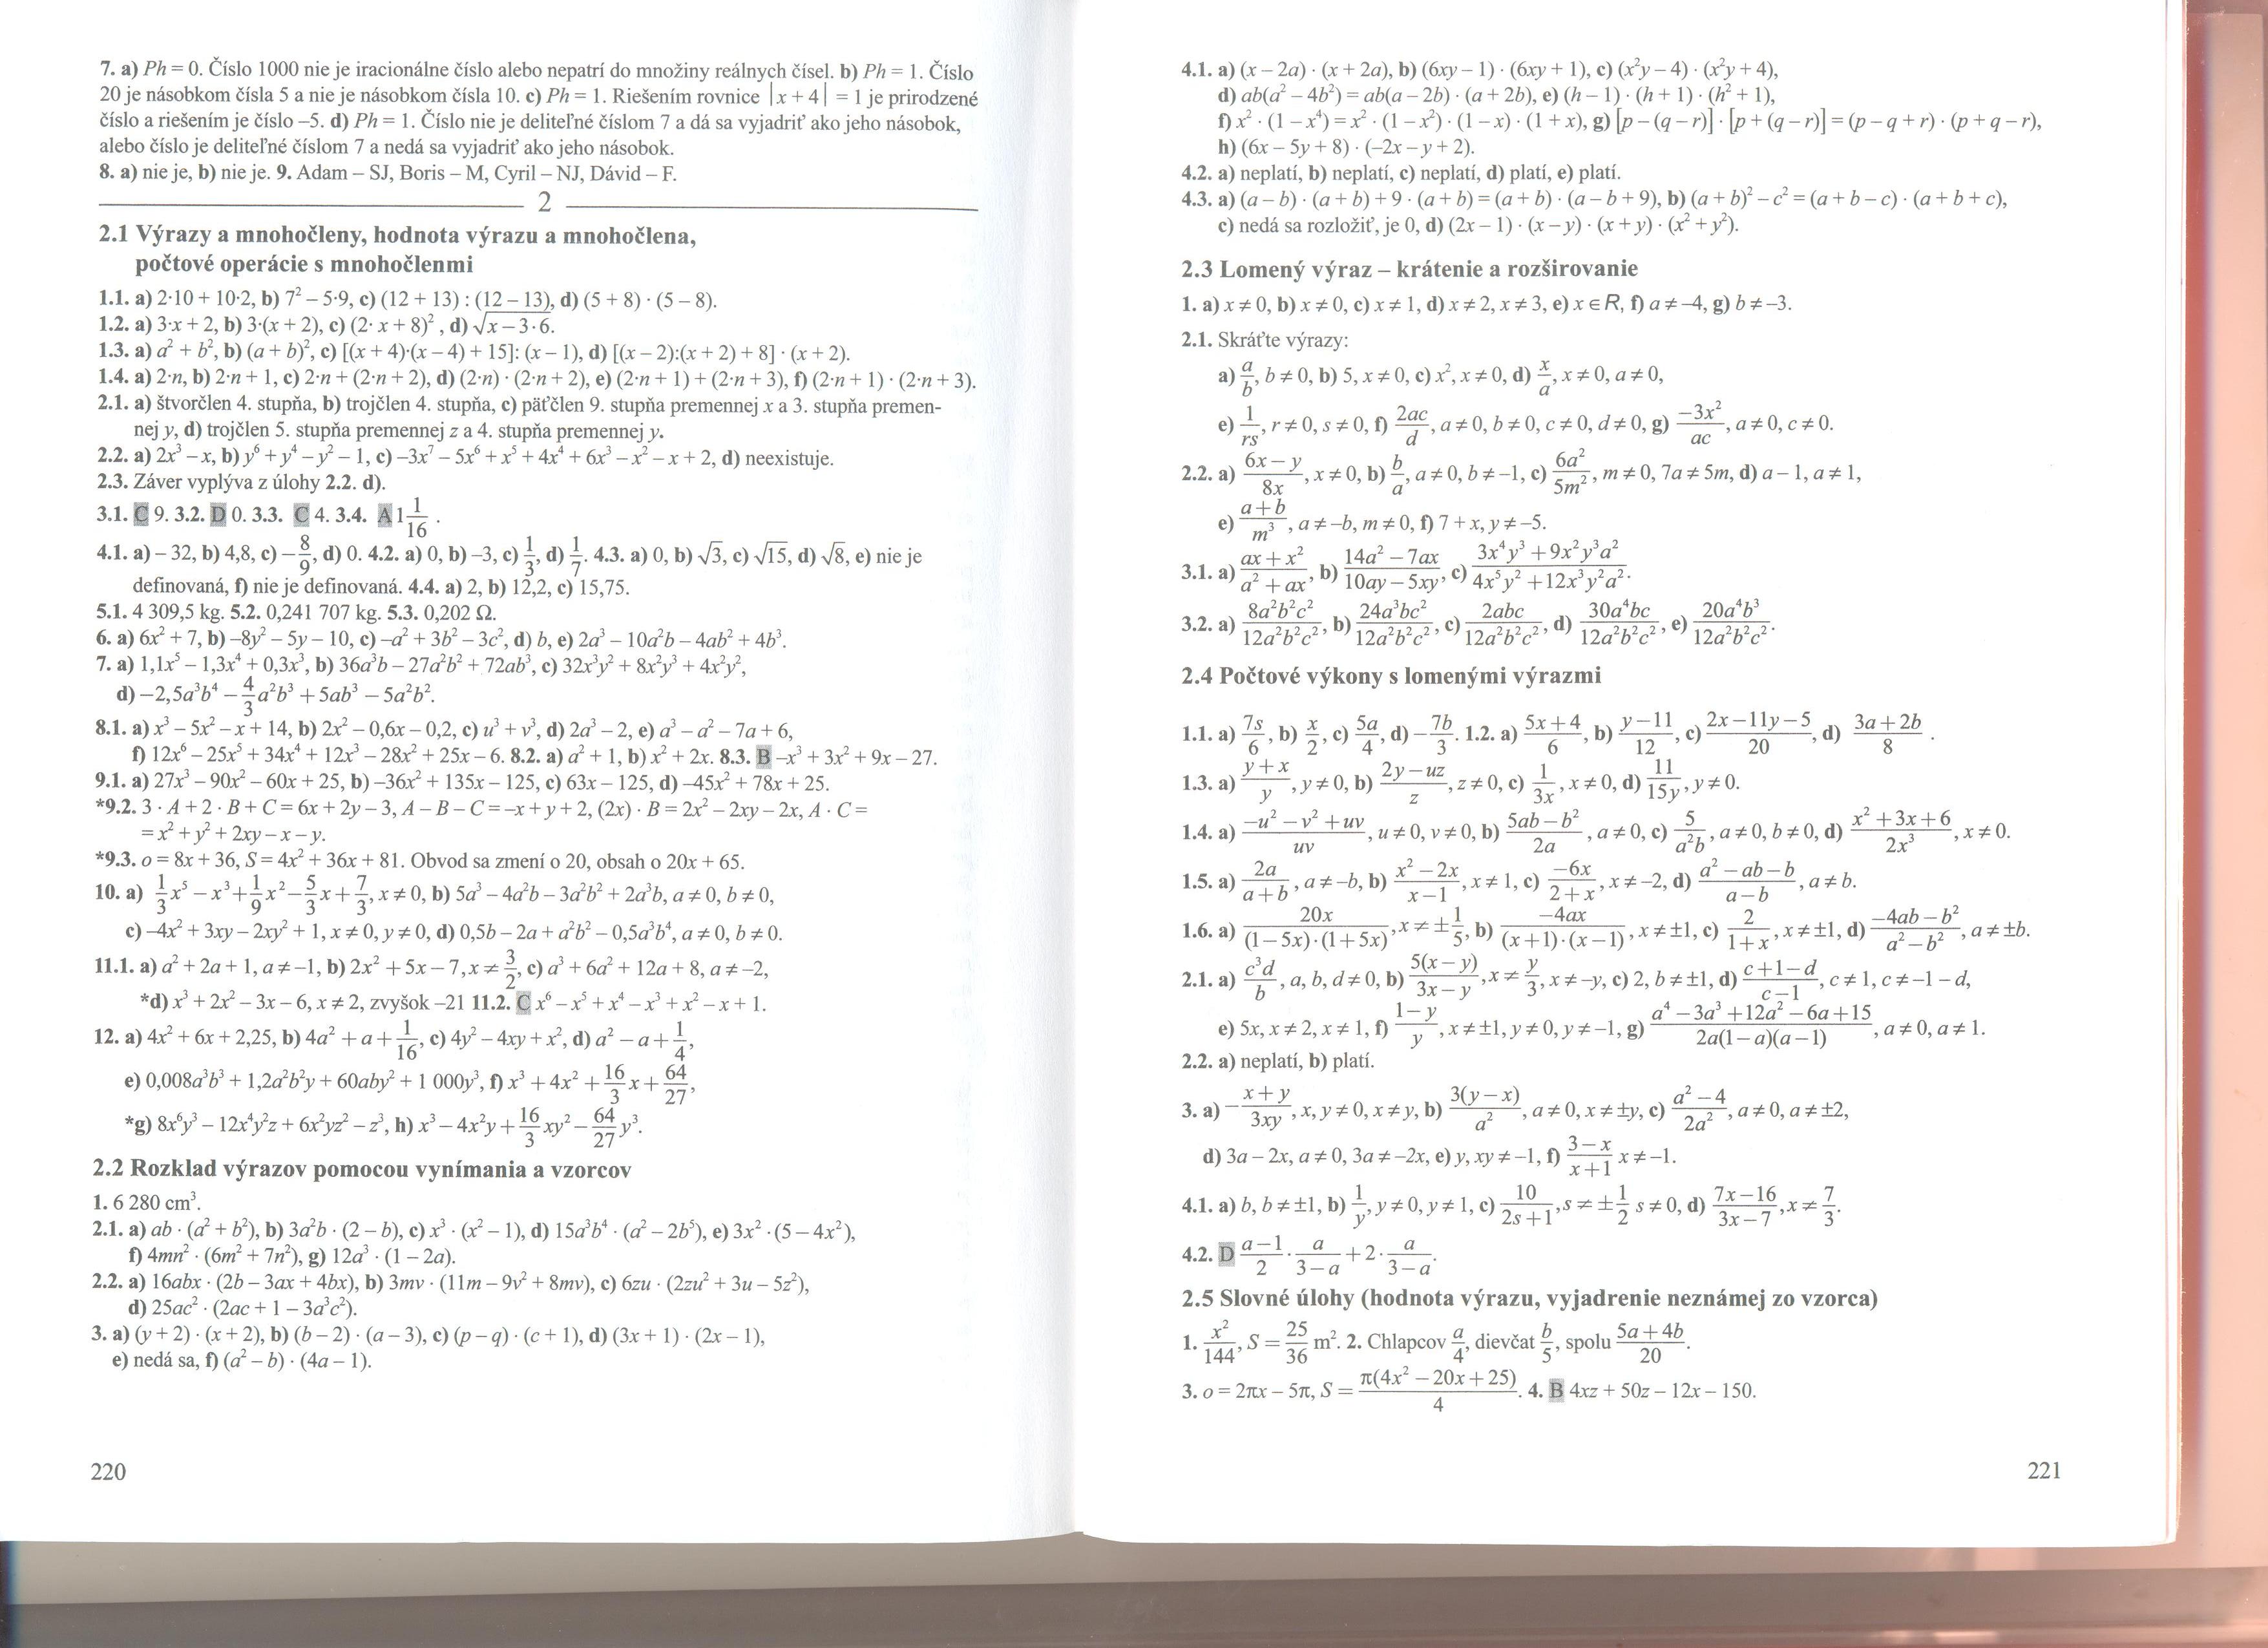 7. a) Ph = 0. Číslo 1000 nie je iracionálne číslo alebo nepatrí do množiny reálnych čísel. b) Ph = 1. Číslo
20 je násobkom čísla 5 a nie je násobkom čísla 10. c) Ph = 1. Riešením rovnice |x + 4| = 1 je prirodzené
číslo a riešením je číslo –5. d) Ph = 1. Číslo nie je deliteľné číslom 7 a dá sa vyjadriť ako jeho násobok,
alebo číslo je deliteľné číslom 7 a nedá sa vyjadriť ako jeho násobok.
8. a) nie je, b) nie je. 9. Adam – SJ, Boris – M, Cyril – NJ, Dávid – F.
2
2.1 Výrazy a mnohočleny, hodnota výrazu a mnohočlena,
počtové operácie s mnohočlenmi
1.1. a) 2·10 + 10·2, b) 7² – 5·9, c) (12 + 13) : (12 – 13), d) (5 + 8) · (5 – 8).
1.2. a) 3·x + 2, b) 3·(x + 2), c) (2· x + 8)², d) √(x – 3·6).
1.3. a) a² + b², b) (a + b)², c) [(x + 4)·(x – 4) + 15]: (x – 1), d) [(x – 2):(x + 2) + 8] · (x + 2).
1.4. a) 2·n, b) 2·n + 1, c) 2·n + (2·n + 2), d) (2·n) · (2·n + 2), e) (2·n + 1) + (2·n + 3), f) (2·n + 1) · (2·n + 3).
2.1. a) štvorčlen 4. stupňa, b) trojčlen 4. stupňa, c) päťčlen 9. stupňa premennej x a 3. stupňa premen-
nej y, d) trojčlen 5. stupňa premennej z a 4. stupňa premennej y.
2.2. a) 2x³ – x, b) y⁶ + y⁴ – y² – 1, c) –3x⁷ – 5x⁶ + x⁵ + 4x⁴ + 6x³ – x² – x + 2, d) neexistuje.
2.3. Záver vyplýva z úlohy 2.2. d).
3.1. C 9. 3.2. D 0. 3.3. C 4. 3.4. A 1 1/16.
4.1. a) – 32, b) 4,8, c) –8/9, d) 0. 4.2. a) 0, b) –3, c) 1/3, d) 1/7. 4.3. a) 0, b) √3, c) √15, d) √8, e) nie je
definovaná, f) nie je definovaná. 4.4. a) 2, b) 12,2, c) 15,75.
5.1. 4 309,5 kg. 5.2. 0,241 707 kg. 5.3. 0,202 Ω.
6. a) 6x² + 7, b) –8y² – 5y – 10, c) –a² + 3b² – 3c², d) b, e) 2a³ – 10a²b – 4ab² + 4b³.
7. a) 1,1x⁵ – 1,3x⁴ + 0,3x³, b) 36a³b – 27a²b² + 72ab³, c) 32x³y² + 8x²y³ + 4x²y²,
d) –2,5a³b⁴ – 4/3 a²b³ + 5ab³ – 5a²b².
8.1. a) x³ – 5x² – x + 14, b) 2x² – 0,6x – 0,2, c) u³ + v³, d) 2a³ – 2, e) a³ – a² – 7a + 6,
f) 12x⁶ – 25x⁵ + 34x⁴ + 12x³ – 28x² + 25x – 6. 8.2. a) a² + 1, b) x² + 2x. 8.3. B –x³ + 3x² + 9x – 27.
9.1. a) 27x³ – 90x² – 60x + 25, b) –36x² + 135x – 125, c) 63x – 125, d) –45x² + 78x + 25.
*9.2. 3 · A + 2 · B + C = 6x + 2y – 3, A – B – C = –x + y + 2, (2x) · B = 2x² – 2xy – 2x, A · C =
= x² + y² + 2xy – x – y.
*9.3. o = 8x + 36, S = 4x² + 36x + 81. Obvod sa zmení o 20, obsah o 20x + 65.
10. a) 1/3 x⁵ – x³ + 1/9 x² – 5/3 x + 7/3, x ≠ 0, b) 5a³ – 4a²b – 3a²b² + 2a³b, a ≠ 0, b ≠ 0,
c) –4x² + 3xy – 2xy² + 1, x ≠ 0, y ≠ 0, d) 0,5b – 2a + a²b² – 0,5a³b⁴, a ≠ 0, b ≠ 0.
11.1. a) a² + 2a + 1, a ≠ –1, b) 2x² + 5x – 7, x ≠ 3/2, c) a³ + 6a² + 12a + 8, a ≠ –2,
*d) x³ + 2x² – 3x – 6, x ≠ 2, zvyšok –21 11.2. C x⁶ – x⁵ + x⁴ – x³ + x² – x + 1.
12. a) 4x² + 6x + 2,25, b) 4a² + a + 1/16, c) 4y² – 4xy + x², d) a² – a + 1/4,
e) 0,008a³b³ + 1,2a²b²y + 60aby² + 1 000y³, f) x³ + 4x² + 16/3 x + 64/27,
*g) 8x⁶y³ – 12x⁴y²z + 6x²yz² – z³, h) x³ – 4x²y + 16/3 xy² – 64/27 y³.
2.2 Rozklad výrazov pomocou vynímania a vzorcov
1. 6 280 cm³.
2.1. a) ab · (a² + b²), b) 3a²b · (2 – b), c) x³ · (x² – 1), d) 15a³b⁴ · (a² – 2b⁵), e) 3x² · (5 – 4x²),
f) 4mn² · (6m² + 7n²), g) 12a³ · (1 – 2a).
2.2. a) 16abx · (2b – 3ax + 4bx), b) 3mv · (11m – 9v² + 8mv), c) 6zu · (2zu² + 3u – 5z²),
d) 25ac² · (2ac + 1 – 3a³c²).
3. a) (y + 2) · (x + 2), b) (b – 2) · (a – 3), c) (p – q) · (c + 1), d) (3x + 1) · (2x – 1),
e) nedá sa, f) (a² – b) · (4a – 1).
220
4.1. a) (x – 2a) · (x + 2a), b) (6xy – 1) · (6xy + 1), c) (x²y – 4) · (x²y + 4),
d) ab(a² – 4b²) = ab(a – 2b) · (a + 2b), e) (h – 1) · (h + 1) · (h² + 1),
f) x² · (1 – x⁴) = x² · (1 – x²) · (1 – x) · (1 + x), g) [p – (q – r)] · [p + (q – r)] = (p – q + r) · (p + q – r),
h) (6x – 5y + 8) · (–2x – y + 2).
4.2. a) neplatí, b) neplatí, c) neplatí, d) platí, e) platí.
4.3. a) (a – b) · (a + b) + 9 · (a + b) = (a + b) · (a – b + 9), b) (a + b)² – c² = (a + b – c) · (a + b + c),
c) nedá sa rozložiť, je 0, d) (2x – 1) · (x – y) · (x + y) · (x² + y²).
2.3 Lomený výraz – krátenie a rozširovanie
1. a) x ≠ 0, b) x ≠ 0, c) x ≠ 1, d) x ≠ 2, x ≠ 3, e) x ∈ R, f) a ≠ –4, g) b ≠ –3.
2.1. Skráťte výrazy:
a) a/b, b ≠ 0, b) 5, x ≠ 0, c) x², x ≠ 0, d) x/a, x ≠ 0, a ≠ 0,
e) 1/rs, r ≠ 0, s ≠ 0, f) 2ac/d, a ≠ 0, b ≠ 0, c ≠ 0, d ≠ 0, g) –3x²/ac, a ≠ 0, c ≠ 0.
2.2. a) (6x – y)/8x, x ≠ 0, b) b/a, a ≠ 0, b ≠ –1, c) 6a²/5m², m ≠ 0, 7a ≠ 5m, d) a – 1, a ≠ 1,
e) (a + b)/m³, a ≠ –b, m ≠ 0, f) 7 + x, y ≠ –5.
3.1. a) (ax + x²)/(a² + ax), b) (14a² – 7ax)/(10ay – 5xy), c) (3x⁴y³ + 9x²y³a²)/(4x⁵y² + 12x³y²a²).
3.2. a) 8a²b²c²/12a²b²c², b) 24a³bc²/12a²b²c², c) 2abc/12a²b²c², d) 30a⁴bc/12a²b²c², e) 20a⁴b³/12a²b²c².
2.4 Počtové výkony s lomenými výrazmi
1.1. a) 7s/6, b) x/2, c) 5a/4, d) –7b/3. 1.2. a) (5x + 4)/6, b) (y – 11)/12, c) (2x – 11y – 5)/20, d) (3a + 2b)/8.
1.3. a) (y + x)/y, y ≠ 0, b) (2y – uz)/z, z ≠ 0, c) 1/3x, x ≠ 0, d) 11/15y, y ≠ 0.
1.4. a) (–u² – v² + uv)/uv, u ≠ 0, v ≠ 0, b) (5ab – b²)/2a, a ≠ 0, c) 5/a²b, a ≠ 0, b ≠ 0, d) (x² + 3x + 6)/2x³, x ≠ 0.
1.5. a) 2a/(a + b), a ≠ –b, b) (x² – 2x)/(x – 1), x ≠ 1, c) –6x/(2 + x), x ≠ –2, d) (a² – ab – b)/(a – b), a ≠ b.
1.6. a) 20x/((1 – 5x)·(1 + 5x)), x ≠ ±1/5, b) –4ax/((x + 1)·(x – 1)), x ≠ ±1, c) 2/(1 + x), x ≠ ±1, d) (–4ab – b²)/(a² – b²), a ≠ ±b.
2.1. a) c³d/b, a, b, d ≠ 0, b) 5(x – y)/(3x – y), x ≠ y/3, x ≠ –y, c) 2, b ≠ ±1, d) (c + 1 – d)/(c – 1), c ≠ 1, c ≠ –1 – d,
e) 5x, x ≠ 2, x ≠ 1, f) (1 – y)/y, x ≠ ±1, y ≠ 0, y ≠ –1, g) (a⁴ – 3a³ + 12a² – 6a + 15)/(2a(1 – a)(a – 1)), a ≠ 0, a ≠ 1.
2.2. a) neplatí, b) platí.
3. a) –(x + y)/3xy, x, y ≠ 0, x ≠ y, b) 3(y – x)/a², a ≠ 0, x ≠ ±y, c) (a² – 4)/2a², a ≠ 0, a ≠ ±2,
d) 3a – 2x, a ≠ 0, 3a ≠ –2x, e) y, xy ≠ –1, f) (3 – x)/(x + 1) x ≠ –1.
4.1. a) b, b ≠ ±1, b) 1/y, y ≠ 0, y ≠ 1, c) 10/(2s + 1), s ≠ ±1/2 s ≠ 0, d) (7x – 16)/(3x – 7), x ≠ 7/3.
4.2. D (a – 1)/2 · a/(3 – a) + 2 · a/(3 – a).
2.5 Slovné úlohy (hodnota výrazu, vyjadrenie neznámej zo vzorca)
1. x²/144, S = 25/36 m². 2. Chlapcov a/4, dievčat b/5, spolu (5a + 4b)/20.
3. o = 2πx – 5π, S = π(4x² – 20x + 25)/4. 4. B 4xz + 50z – 12x – 150.
221